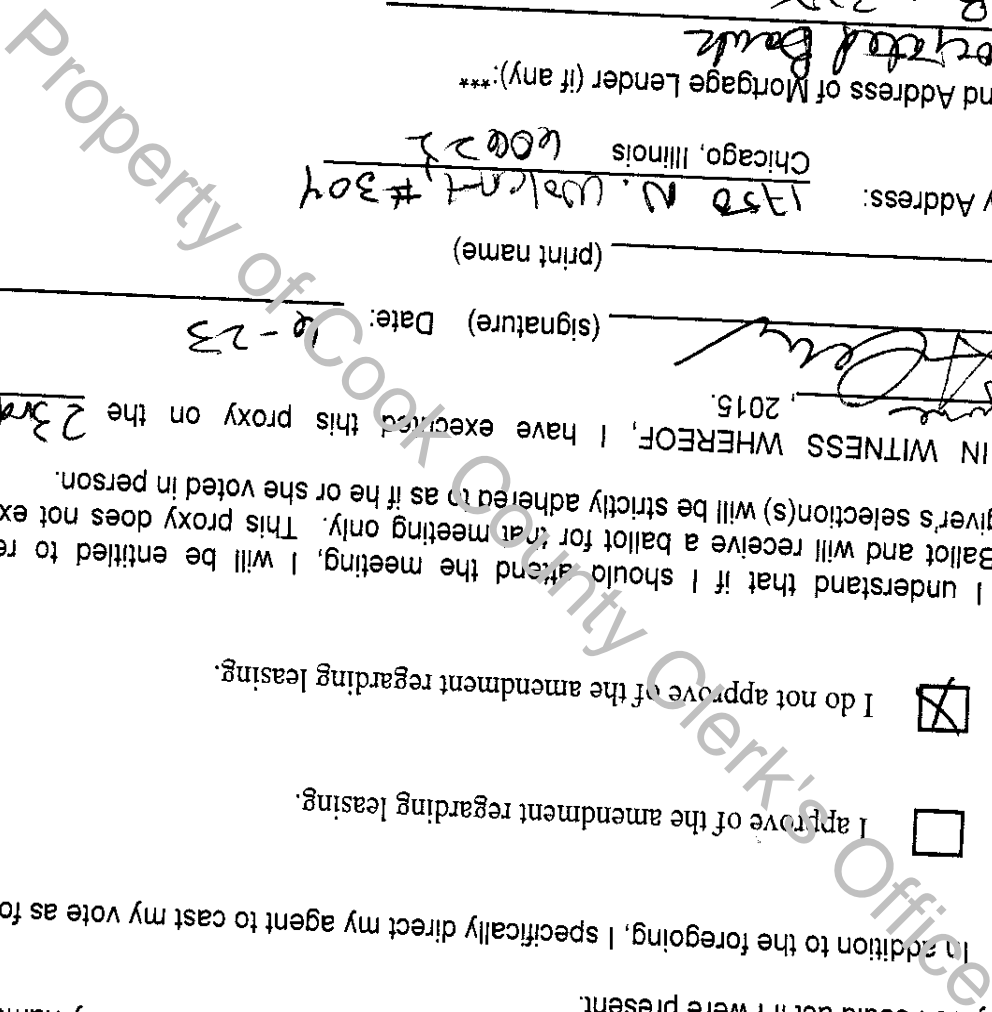 I were present.
In addition to the foregoing, I specifically direct my agent to cast my vote as fo
I approve of the amendment regarding leasing.
I do not approve of the amendment regarding leasing.
I understand that if I should attend the meeting, I will be entitled to re
Ballot and will receive a ballot for that meeting only. This proxy does not ex
giver's selection(s) will be strictly adhered to as if he or she voted in person.
IN WITNESS WHEREOF, I have executed this proxy on the 23rd
, 2015.
(signature) Date: 6-23
(print name)
y Address: 1750 N. Wolcott, #304
Chicago, Illinois 60622
nd Address of Mortgage Lender (if any):***
Bank
Property of Cook County Clerk's Office